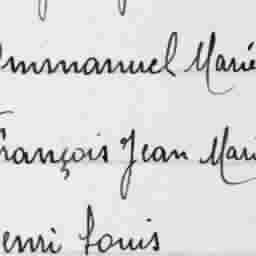 Emmanuel Marie
François Jean Mari
enri Louis